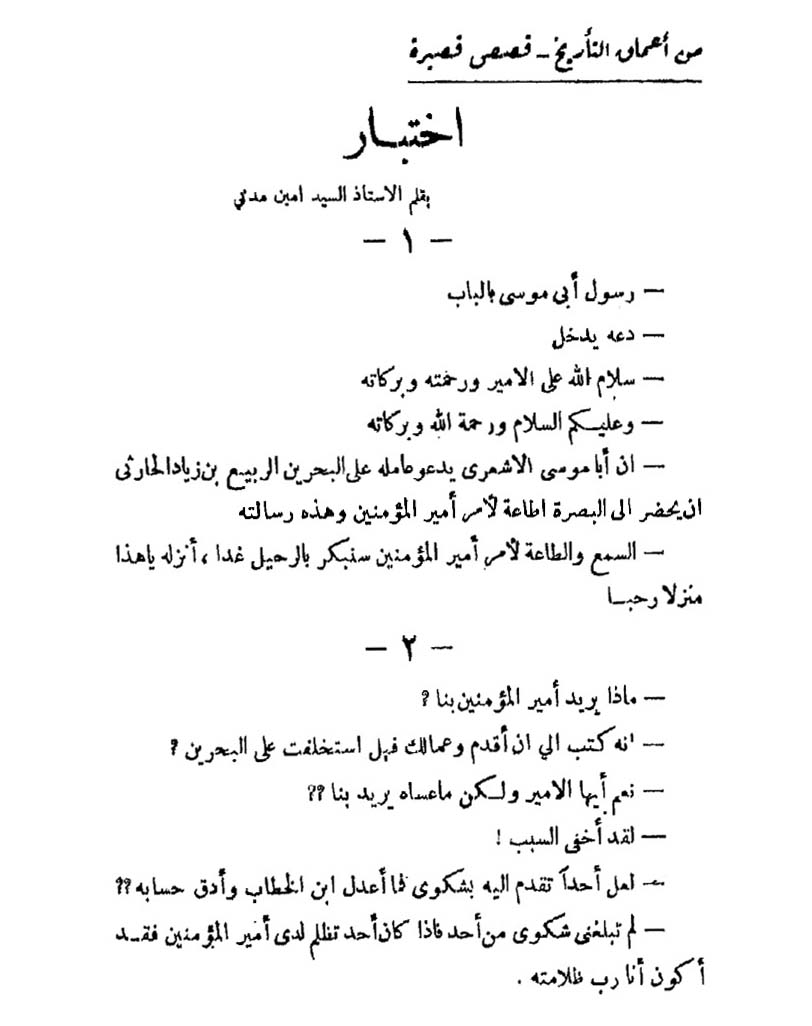 من أعماق التأريخ – قصص قصيرة
اختبـار
بقلم الاستاذ السيد امين مدني
– ١ –
— رسول أبى موسى بالباب
— دعه يدخل
— سلام الله على الامير ورحمته وبركاته
— وعليـكم السلام ورحمة الله وبركاته
— ان أبا موسى الاشعرى يدعو عامله على البحرين الربيع بن زياد الحارثى
ان يحضر الى البصرة اطاعة لأمر أمير المؤمنين وهذه رسالته
— السمع والطاعة لأمر أمير المؤمنين سنبكر بالرحيل غدا ، أنزله ياهذا
منزلا رحبـا
– ٢ –
— ماذا يريد أمير المؤمنين بنا ؟
— انه كتب الي ان أقدم وعمالك فهل استخلفت على البحرين ؟
— نعم أيها الامير ولـكن ماعساه يريد بنا ؟؟
— لقد أخفى السبب !
— لعل أحداً تقدم اليه بشكوى فما أعدل ابن الخطاب وأدق حسابه ؟؟
— لم تبلغنى شكوى من أحد فاذا كان أحد تظلم لدى أمير المؤمنين فقـد
أكون أنا رب ظلامته .